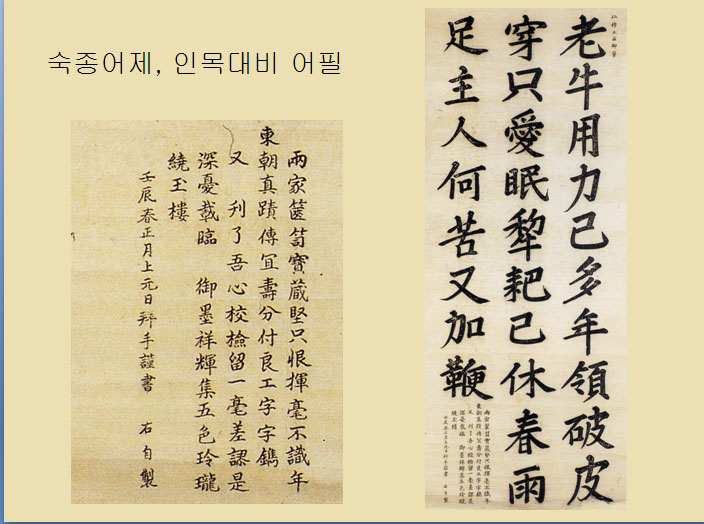 숙종어제, 인목대비 어필
兩家篋笥寶藏堅只恨揮毫不識年
東朝真蹟傳冝壽分付良工字字鐫
又 刋了吾心校檢留一毫差謬是
深憂載臨 御墨祥輝集五色玲瓏
繞玉樓
壬辰春正月上元日拜手謹書 右自製
仁穆王后御筆
老牛用力已多年領破皮
穿只愛眠犂耙已休春雨
足主人何苦又加鞭